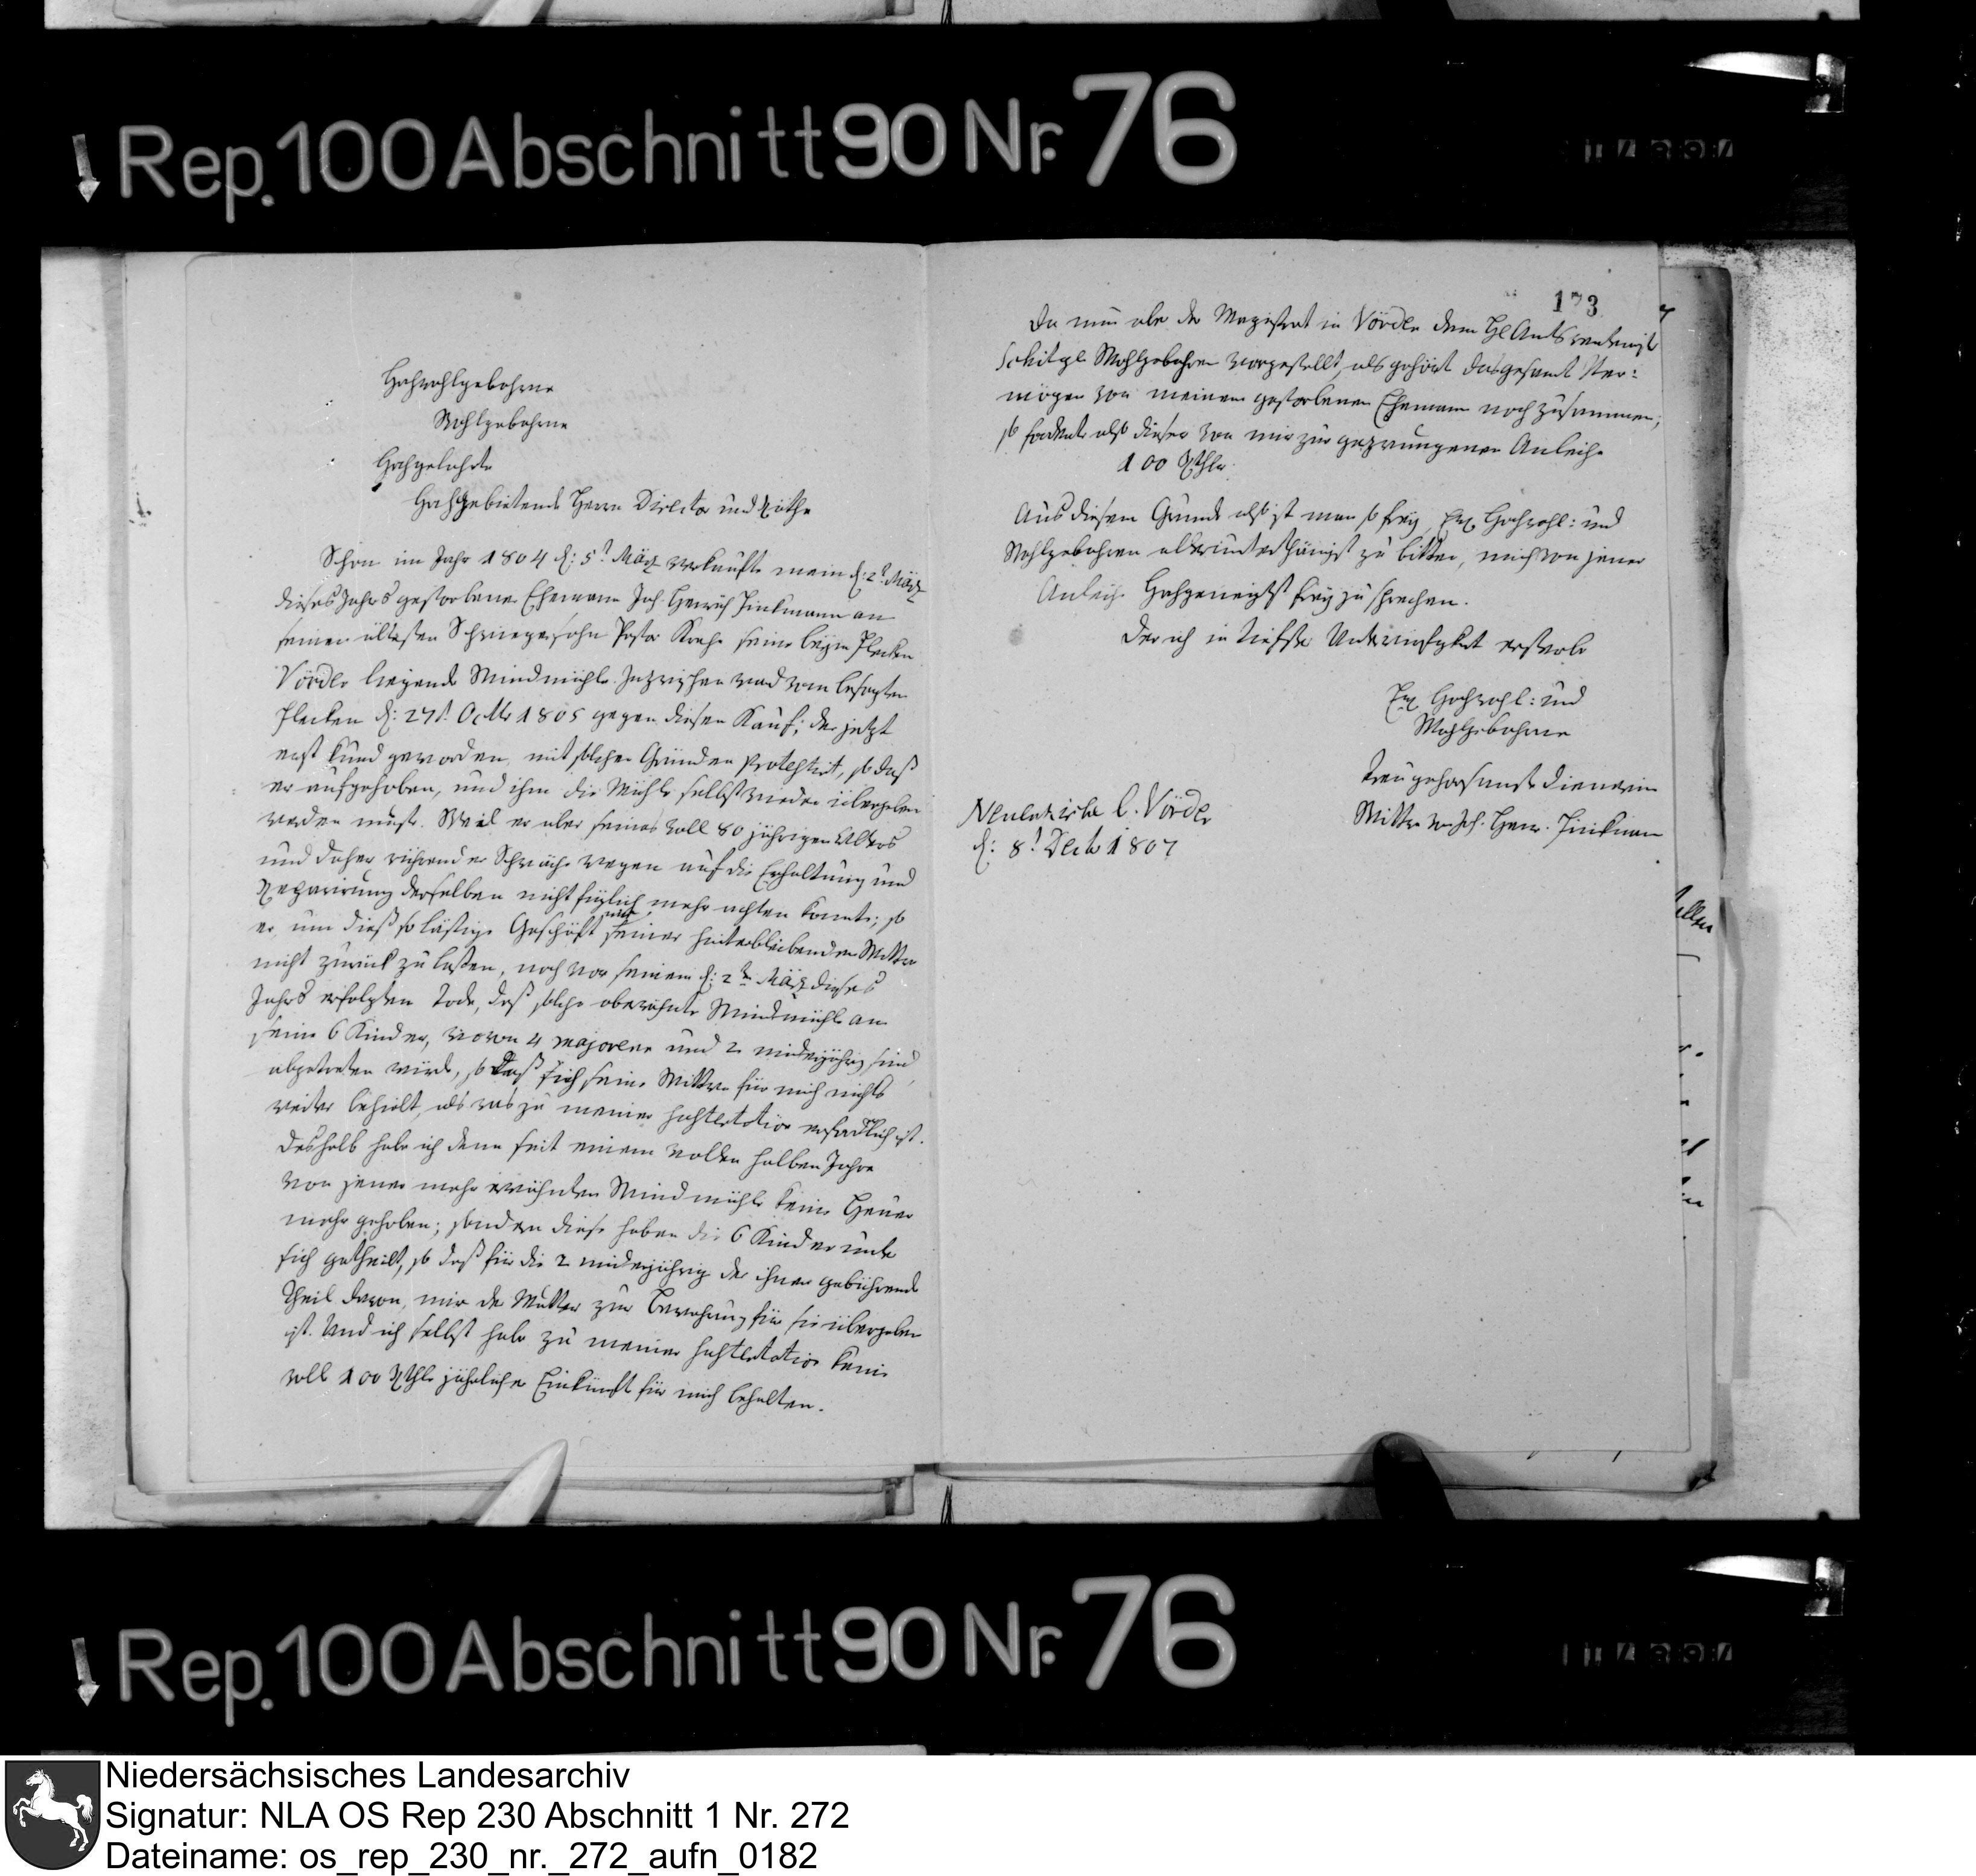 Rep. 100 Abschnitt 90 Nr. 76
173
Hochwohlgebohrne
Wohlgebohrne
Hochgelahrte
Hochgebietende Herrn Director und Räthe
Schon im Jahr 1804 d: 5t März verkaufte mein d: 2t März
dieses Jahrs gestorbener Ehemann Joh. Henrich Finkmann an
seinen ältesten Schwiegersohn Pastor seine beym Flecken
Vörden liegende Windmühle. Inzwischen ward vom besagten
Flecken d: 27t Octbr 1805 gegen diesen Kauf, der jetzt
erst kund geworden, mit solchen Gründen protestirt, so daß
er aufgehoben, und ihm die Mühle selbst wieder übergeben
werden muste. Weil er aber seines voll 80 jährigen Alters
und daher rührender Schwäche wegen auf die Erhaltung und
Reparirung derselben nicht füglich mehr achten konnte; so
er, um dieß so lästige Geschäft mir seiner hinterbleibenden Wittwe
nicht zurück zu laßen, noch vor seinem d: 2t März dieses
Jahrs erfolgten Tode, daß solche oberwähnte Windmühle an
seine 6 Kinder, wovon 4 majorenn und 2 minderjährig sind,
abgetreten würde, so daß ich seine Wittwe für mich nichts
weiter behielt, als was zu meiner Sustentation erforderlich ist.
Deshalb habe ich denn seit einem vollen halben Jahre
von jener mehr erwähnten Windmühle keine Heuer
mehr gehoben; sondern diese haben die 6 Kinder unter
sich getheilt, so daß für die 2 minderjährig der ihnen gebührende
Theil davon, mir der Mutter zur Bewahrung für sie übergeben
ist. Und ich selbst habe zu meiner Sustentation keine
voll 100 Rthlr jährliche Einkünfte für mich behalten.
Da nun aber der Magistrat in Vörden dem H Amtsrentmeister
Wohlgebohren vorgestellt, als gehört das gesamt Ver:
mögen von meinem gestorbenen Ehemann noch zusammen;
so forderte also dieser von mir zur gezwungenen Anleihe
100 Rthlr.
Aus diesem Grunde also ist man so frey, Ew. Hochwohl: und
Wohlgebohren allerunterthänigst zu bitten, mich von jener
Anleihe Hochgeneigtst frey zu sprechen.
Der ich in tiefster Unterwürfigkeit ersterbe
Ew. Hochwohl: und
Wohlgebohrne
treugehorsamste Dienerin
Wittwe von Joh. Henr. Finkmann
Neuenkirche b. Vörden
d: 8t Decbr 1807
Rep. 100 Abschnitt 90 Nr. 76
Niedersächsisches Landesarchiv
Signatur: NLA OS Rep 230 Abschnitt 1 Nr. 272
Dateiname: os_rep_230_nr._272_aufn_0182